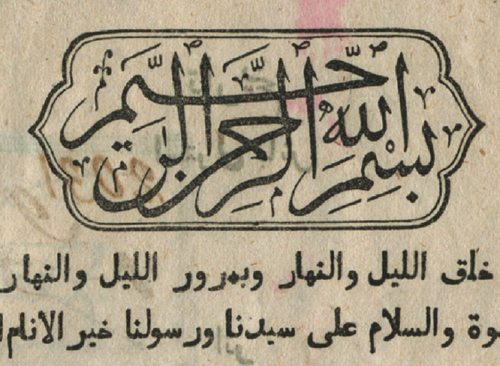 بسم الله الرحمن الرحيم
خلق الليل والنهار وبمرور الليل والنهار
وة والسلام على سيدنا ورسولنا خير الانام